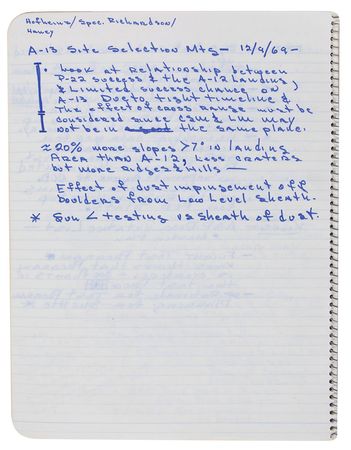 Hofheins/Spec. Richardson/
Haney
A-13 Site Selection Mtg- 12/9/69-
• Look at relationship between
P-22 success & the A-12 landing
& limited success chance on
A-13 Due to tight timeline &
The effect of cross range must be
considered since CSM & LM may
not be in the same plane.
≈ 20% more slopes >7° in landing
Area than A-12, Less craters
but more Ridges & Hills —
Effect of dust impingement off
boulders from Low Level sheath.
* Sun < testing vs sheath of dust.